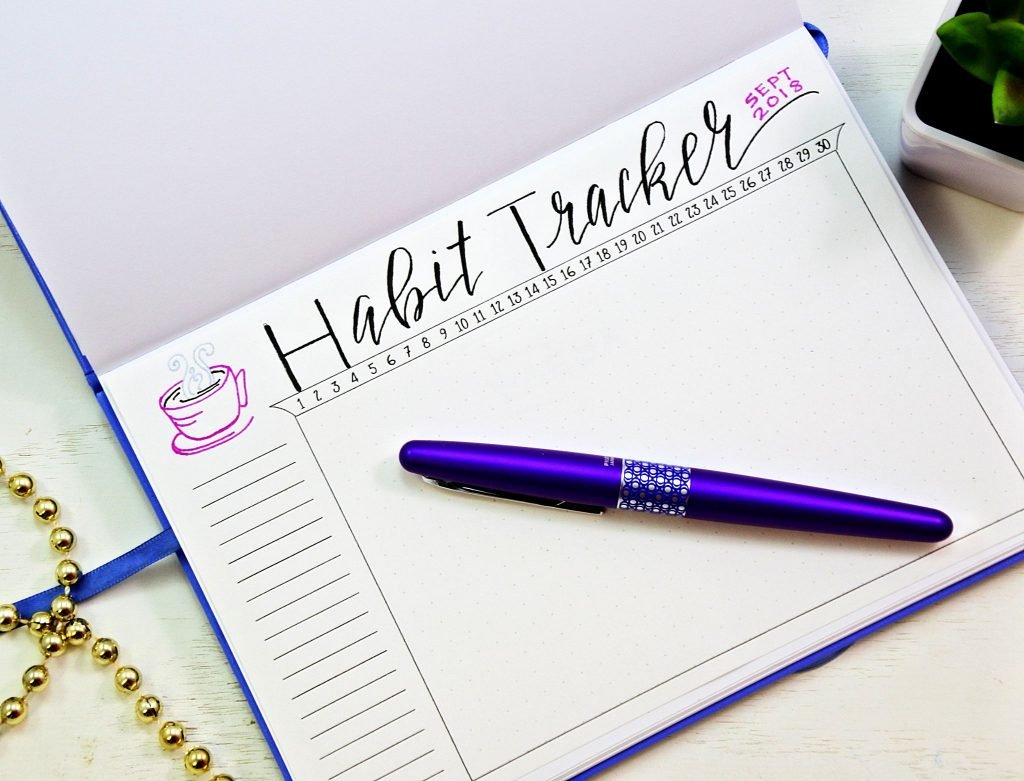 Habit Tracker
SEPT
2018
1 2 3 4 5 6 7 8 9 10 11 12 13 14 15 16 17 18 19 20 21 22 23 24 25 26 27 28 29 30